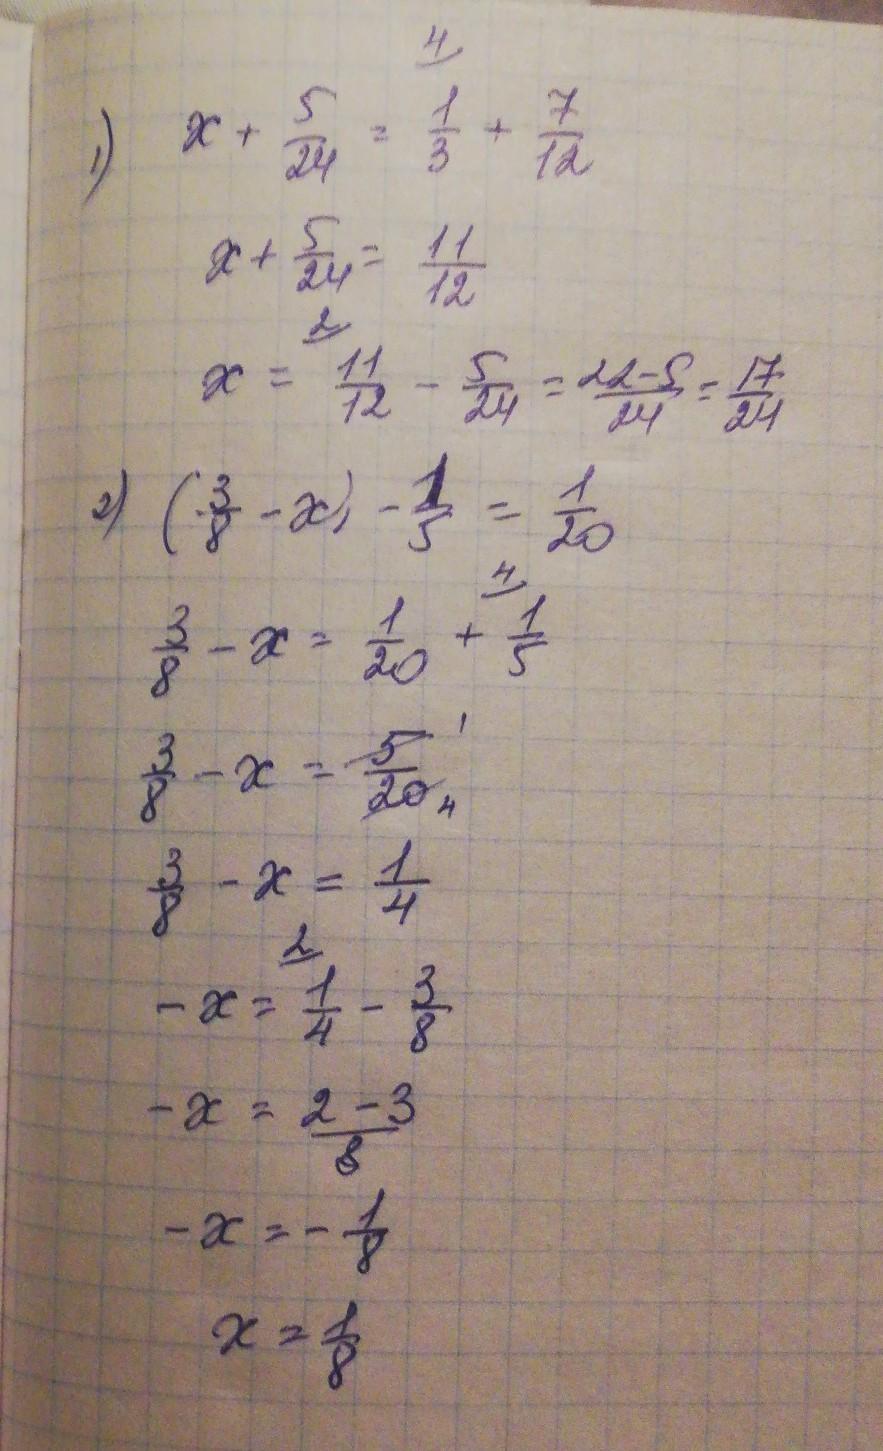 4
1) x + 5/24 = 1/3 + 7/12
x + 5/24 = 11/12
2
x = 11/12 - 5/24 = 22-5/24 = 17/24
2) (3/8 - x) - 1/5 = 1/20
4
3/8 - x = 1/20 + 1/5
3/8 - x = 5/20 1 4
3/8 - x = 1/4
2
-x = 1/4 - 3/8
-x = 2-3/8
-x = -1/8
x = 1/8